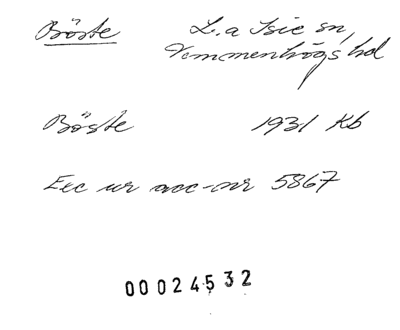 Böste L.a Isie sn,
Vemmenhögs hd
Böste 1931 Kb
Exc ur acc-nr 5867
00024532